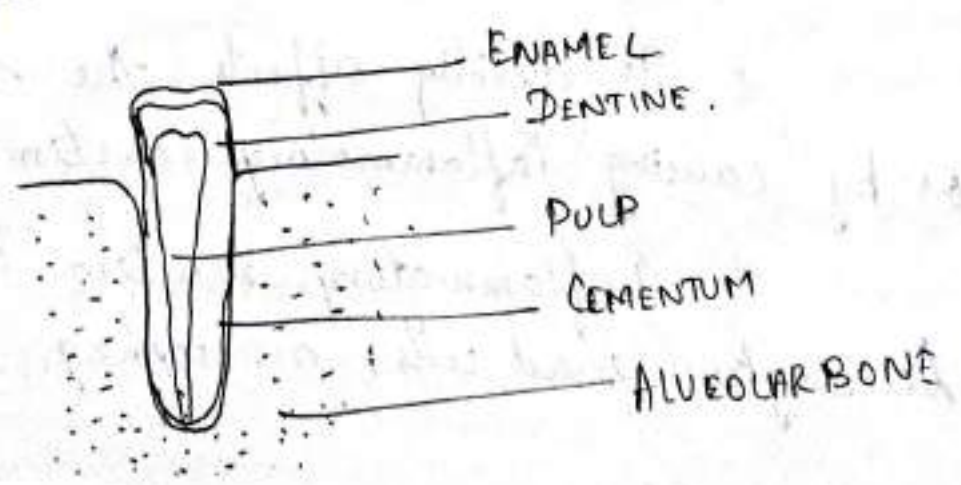 ENAMEL
DENTINE.
PULP
CEMENTUM
ALVEOLAR BONE